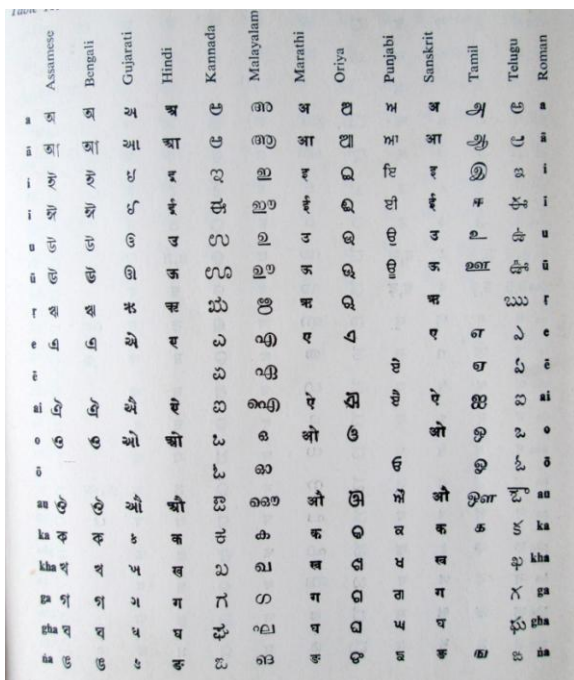 Assamese Bengali Gujarati Hindi Kannada Malayalam Marathi Oriya Punjabi Sanskrit Tamil Telugu Roman
a অ অ અ अ ಅ അ अ ଅ ਅ अ அ అ a
ā আ আ આ आ ಆ ആ आ ଆ ਆ आ ஆ ఆ ā
i ই ই ઇ इ ಇ ഇ इ ଇ ਇ इ இ ఇ i
ī ঈ ঈ ઈ ई ಈ ഈ ई ଈ ਈ ई ஈ ఈ ī
u উ উ ઉ उ ಉ ഉ उ ଉ ਉ उ உ ఉ u
ū ঊ ঊ ઊ ऊ ಊ ഊ ऊ ଊ ਊ ऊ ஊ ఊ ū
ṛ ঋ ঋ ઋ ऋ ಋ ഋ ऋ ଋ ऋ ఋ ṛ
e এ এ એ ए ಎ എ ए ଏ ए எ ఎ e
ē ಏ ഏ ਏ ஏ ఏ ē
ai ঐ ঐ ઐ ऐ ಐ ഐ ऐ ଐ ਐ ऐ ஐ ఐ ai
o ও ও ઓ ओ ಒ ഒ ओ ଓ ओ ஒ ఒ o
ō ಓ ഓ ਓ ஓ ఓ ō
au ঔ ঔ ઔ औ ಔ ഔ औ ଔ ਔ औ ஔ ఔ au
ka ক ক ક क ಕ ക क କ ਕ क க క ka
kha খ খ ખ ख ಖ ഖ ख ଖ ਖ ख ఖ kha
ga গ গ ગ ग ಗ ഗ ग ଗ ਗ ग గ ga
gha ঘ ঘ ઘ घ ಘ ഘ घ ଘ ਘ घ ఘ gha
ṅa ঙ ঙ ઙ ङ ಙ ങ ङ ଙ ਙ ङ ங ఙ ṅa